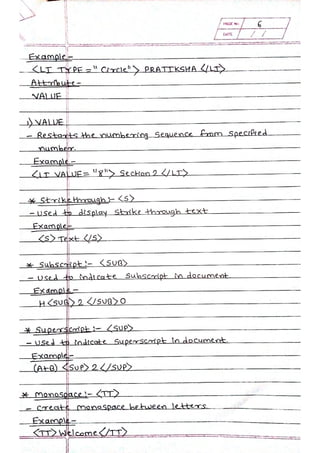 PAGE No. 6
DATE / /
Example-
<LI TYPE = "Circle"> PRATIKSHA </LI>
Attribute-
VALUE
i) VALUE
- Restarts the numbering sequence from specified
number.
Example-
<LI VALUE= "8"> Section 2 </LI>
* Strikethrough :- <S>
- used to display strike through text
Example-
<S> Text </S>
* Subscript :- <SUB>
- used to indicate subscript in document
Example-
H <SUB> 2 </SUB> O
* Superscript :- <SUP>
- Used to indicate superscript in document.
Example-
(A+B) <SUP> 2 </SUP>
* Monospace :- <TT>
- create monospace between letters.
Example-
<TT> Welcome </TT>